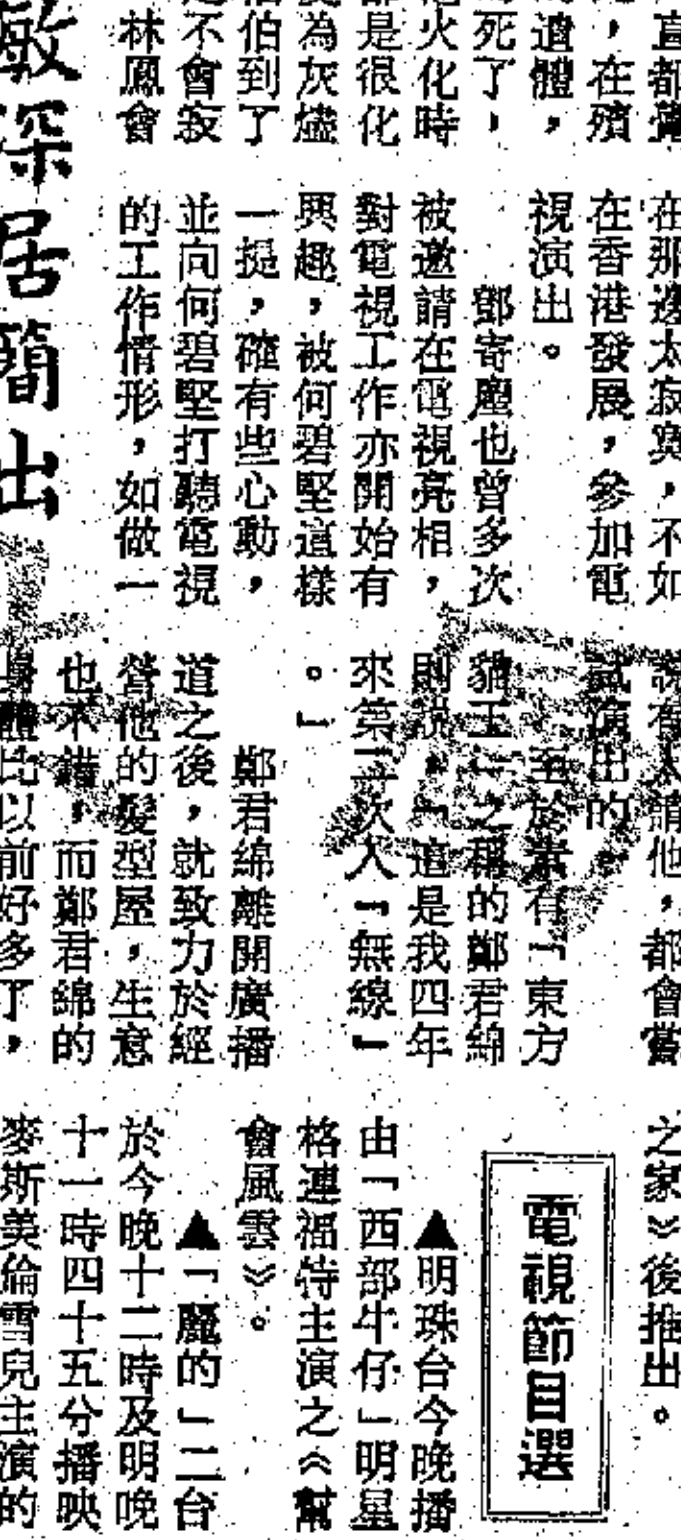 直都覺
，在殯
遺體，
死了，
火化時
是很化
為灰燼
伯到了
不會寂
林鳳會
在那邊太寂寞，不如
在香港發展，參加電
視演出。
鄧寄塵也曾多次
被邀請在電視亮相，
對電視工作亦開始有
興趣，被何碧堅這樣
一提，確有些心動，
並向何碧堅打聽電視
的工作情形，如做一
深居簡出
說有人請他，都會嘗
試演出的。
至於素有「東方
貓王」之稱的鄭君綿
則說，「這是我四年
來第二次入「無線」
。」
鄭君綿離開廣播
道之後，就致力於經
營他的髮型屋，生意
也不錯，而鄭君綿的
身體比以前好多了，
之家》後推出。
電視節目選
▲明珠台今晚播
由「西部牛仔」明星
格連福特主演之《幫
會風雲》。
▲「麗的」二台
於今晚十二時及明晚
十一時四十五分播映
麥斯美倫雪兒主演的